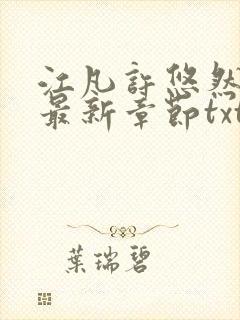 江凡許悠然
最新章節txt
葉瑞碧